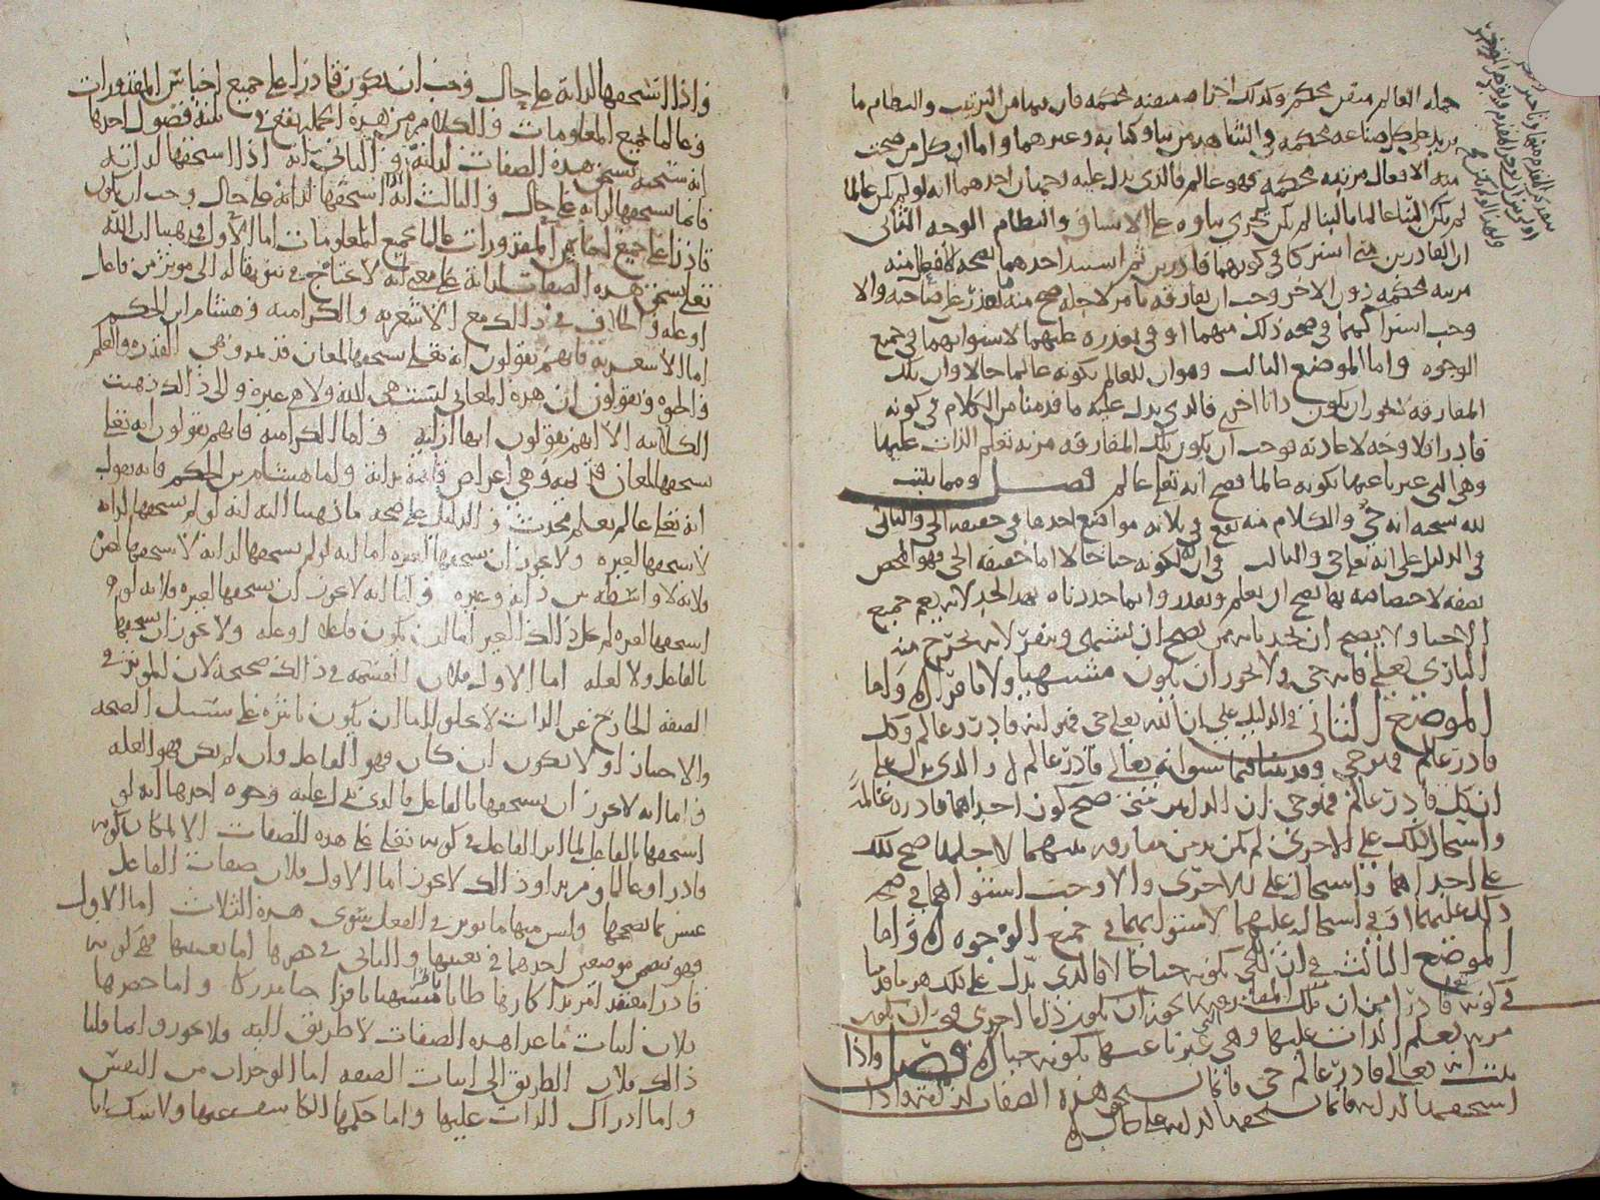 جملة العالم متقن محكم وكذلك اجزاه متقنه محكمه فان فيها من الترتيب والنظام ما
يزيد على كل صناعه محكمه في الشاهد من بنا وكتابه وغيرهما واما ان كل من صحت
منه الافعال مرتبه محكمه فهو عالم فالذي يدل عليه وجهان احدهما انه لو لم يكن عالما
لم يكن على الاتساق والنظام الوجه الثاني
ان القادرين متى اشتركا في كونهما قادرين ثم استبد احدهما بصحه الافعال منه
مرتبه محكمه دون الاخر وجب ان يفارقه بامر لاجله صح منه ما تعذر على صاحبه والا
وجب اشتراكهما في صحه ذلك منهما او في تعذره عليهما لاستوايهما في جميع
الوجوه واما الموضع الثالث وهو ان للعالم بكونه عالما حالا وان تلك
المفارقه فالذي يدل عليه ما قدمنا من الكلام في كونه
قادرا فلا وجه لاعادته فوجب ان يكون تلك المفارقه مزيه تعلم الذات عليها
وهي التي عبرنا عنها بكونه عالما فصح انه تعالى عالم فصل ومما يثبت
لله سبحانه انه حي والكلام منه يقع في ثلاثه مواضع احدها في حقيقه الحي والثاني
في الدليل على انه تعالى حي والثالث في ان له بكونه حيا حالا اما حقيقه الحي فهو المختص
بصفه لاختصاصه بها يصح ان يعلم ويقدر وانما حددناه بهذا الحد لانه يعم جميع
الاحيا ولا يصح ان يحد بانه من يصح ان يشتهي وينفر لانه يخرج منه
الباري تعالى فانه حي ولا يجوز ان يكون مشتهيا ولا نافرا واما
الموضع الثاني في الدليل على ان الله تعالى حي فهو انه قادر عالم وكل
قادر عالم فهو حي وقد بينا فيما سبق انه تعالى قادر عالم والذي يدل على
ان كل قادر عالم فهو حي ان الذاتين متى صح كون احداهما قادره عالمه
واستحال ذلك على الاخرى لم يكن بد من مفارقه بينهما لاجلها صح ذلك
على احداهما واستحال على الاخرى والا وجب استواهما في صحه
ذلك عليهما او في استحالته عليهما لاستوايهما في جميع الوجوه واما
الموضع الثالث في ان للحي بكونه حيا حالا فالذي يدل على ذلك هو ما قدمنا
في كونه قادرا من ان تلك المفارقه لا يجوز ان يكون ذاتا اخرى فيجب ان يكون
مزيه تعلم الذات عليها وهي التي عبرنا عنها بكونه حيا فصل واذا
ثبت انه تعالى قادر عالم حي فانما يستحق هذه الصفات لذاته واذا
استحقها لذاته فانما يستحقها لذاته على حال
واذا استحقها لذاته على حال وجب ان يكون قادرا على جميع اجناس المقدورات
وعالما بجميع المعلومات والكلام من هذه الجمله يقع في ثلثه فصول احدها
انه سبحنه يستحق هذه الصفات لذاته والثاني انه اذا استحقها لذاته
فانما يستحقها لذاته على حال والثالث انه اذا استحقها لذاته على حال وجب ان يكون
قادرا على جميع اجناس المقدورات عالما بجميع المعلومات اما الاول فذهبنا ان الله
تعالى يستحق هذه الصفات لذاته على معنى انه لا يحتاج في ثبوتها له الى موثر من فاعل
او عله والخلاف في ذلك مع الاشعريه والكراميه وهشام ابن الحكم
اما الاشعريه فانهم يقولون انه تعالى يستحقها لمعان قديمه وهي القدره والعلم
والحيوه ويقولون ان هذه المعاني ليست هي الله ولا هي غيره والى ذلك ذهبت
الكلابيه الا انهم يقولون انها ازليه واما الكراميه فانهم يقولون انه تعالى
يستحقها لمعان قديمه وهي اعراض قائمه بذاته واما هشام بن الحكم فانه يقول
انه تعالى عالم بعلم محدث والدليل على صحه ما ذهبنا اليه انه لو لم يستحقها لذاته
لاستحقها لغيره ولا يجوز ان يستحقها لغيره اما انه لو لم يستحقها لذاته لاستحقها لغيره
فلانه لا واسطه بين ذاته وغيره واما انه لا يجوز ان يستحقها لغيره فلانه لو
استحقها لغيره لم يخل ذلك الغير اما ان يكون فاعلا او عله ولا يجوز ان يستحقها
بالفاعل ولا لعله اما الاول فلان القسمه في ذلك صحيحه لان الموثر في
الصفه الخارج عن الذات لا يخلو اما ان يكون تاثيره على سبيل الصحه
والاختيار او لا يكون ان كان فهو الفاعل وان لم يكن فهو العله
واما انه لا يجوز ان يستحقها بالفاعل فالذي يدل عليه وجوه احدها انه لو
استحقها بالفاعل لما اثر الفاعل في كونه تعالى على هذه الصفات الا لمكان كونه
قادرا وعالما ومريدا وذلك لا يجوز اما الاول فلان صفات الفاعل
وليس فيها ما يوثر في الفعل سوى هذه الثلاث اما الاول
فهو يتضمن موضعين احدهما في تعيينها والثاني في حصرها اما تعيينها فهي كونه
قادرا معتقدا مريدا كارها ظانا ناظرا مشتهيا نافرا حيا مدركا واما حصرها
فلان اثبات ما عدا هذه الصفات لا طريق اليه ولا يجوز وانما قلنا
ذلك فلان الطريق الى اثبات الصفه اما الوجدان من النفس
واما ادراك الذات عليها واما حكمها الكاشف عنها ولا شك انا